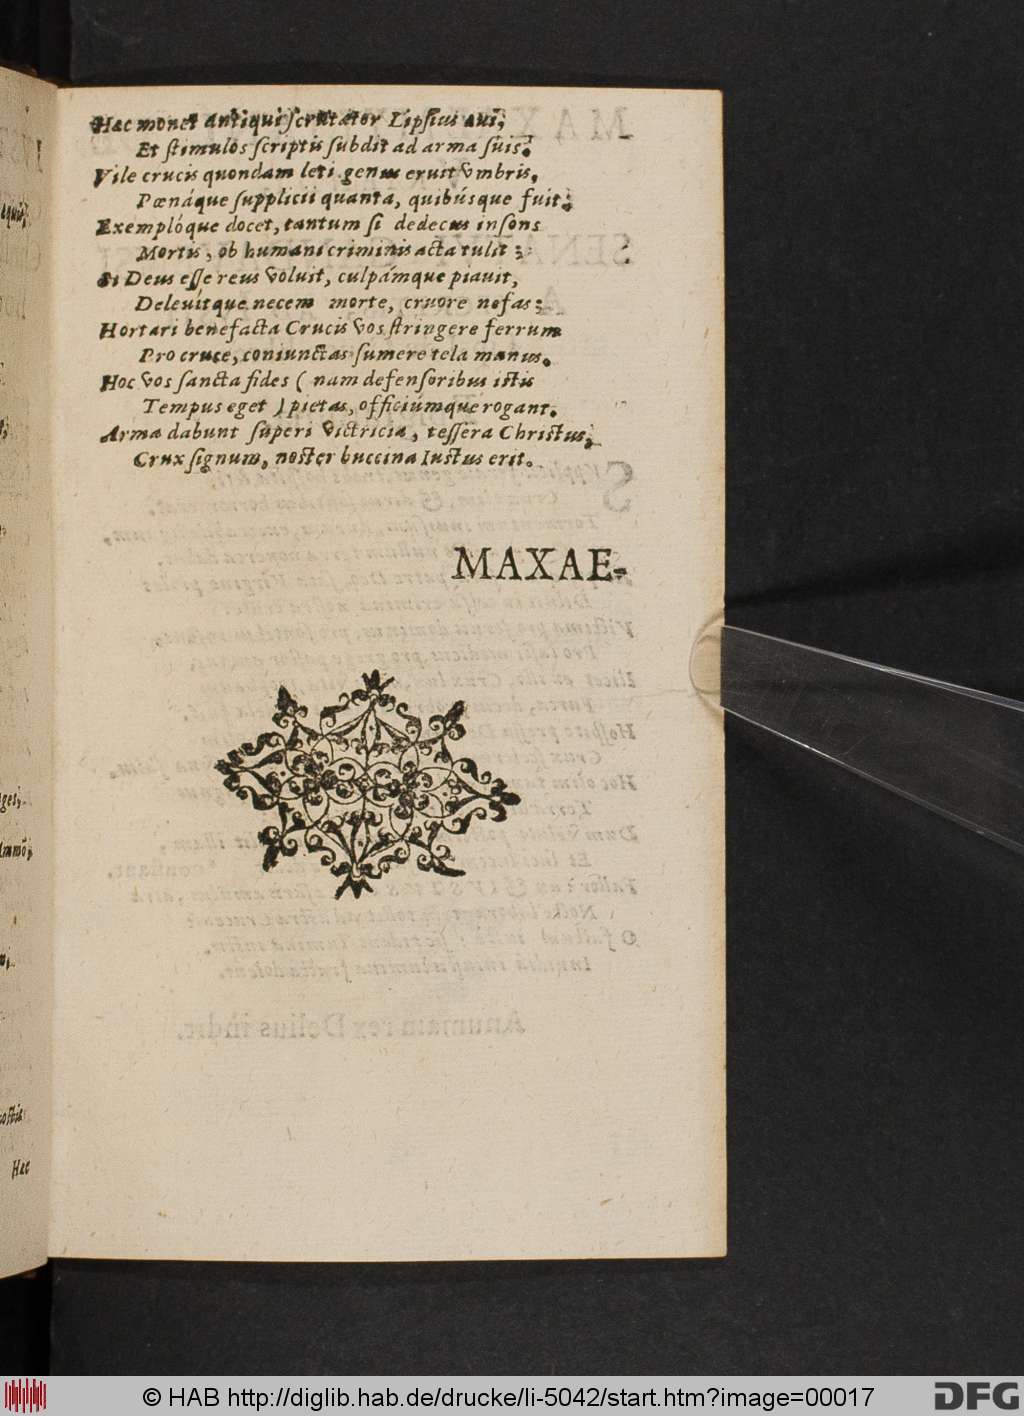 Hæc monet antiqui scrutator Lipsius aui,
Et stimulos scriptis subdit ad arma suis.
Vile crucis quondam leti genus eruit vmbris,
Pœnáque supplicii quanta, quibúsque fuit;
Exemplóque docet, tantum si dedecus insons
Mortis, ob humani criminis acta tulit;
Si Deus esse reus voluit, culpámque piauit,
Deleuítque necem morte, cruore nefas;
Hortari benefacta Crucis vos stringere ferrum
Pro cruce, coniunctas sumere tela manus.
Hoc vos sancta fides ( nam defensoribus istis
Tempus eget ) pietas, officiúmque rogant.
Arma dabunt superi victricia, tessera Christus,
Crux signum, noster buccina Iustus erit.
MAXAE-
Hæc
© HAB http://diglib.hab.de/drucke/li-5042/start.htm?image=00017
DFG